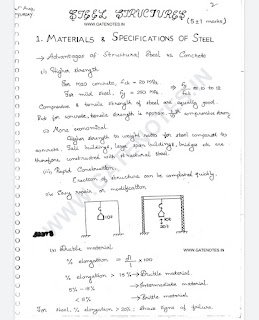 2
STEEL STRUCTURES
WWW.GATENOTES.IN
(5±1 marks)
1. MATERIALS & SPECIFICATIONS OF STEEL
→ Advantages of Structural Steel vs Concrete
(i) Higher strength
For M20 concrete, fck = 20 MPa
For mild steel, fy = 250 MPa
Compressive & tensile strength of steel are equally good.
But for concrete, tensile strength is
compressive streng
(ii) More economical
Higher strength to weight ratio for steel compared to
concrete. Tall buildings, long span buildings, bridges etc are
therefore constructed with structural steel.
(iii) Rapid Construction
Erection of structure can be completed quickly.
(iv) Easy repair or modification
WWW.GATENOTES.IN
(v) Ductile material
% elongation = × 100
% elongation > 15% → Ductile material
5% - 15% → Intermediate material
< 5% → Brittle material
For steel, % elongation > 20%; shows signs of failure.